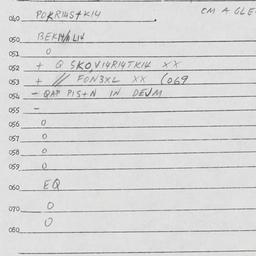 040 PORRI4S+KI4 . CM A GLE
050 BEKM LI4
051 O
052 + Q SKO,VI4RI4TKI4 XX
053 + // FON3XL XX (069
054 - QAP PIS+N IN DEVM
055 -
056 O
057 O
058 O
059 O
060 EQ
070 O
O
080